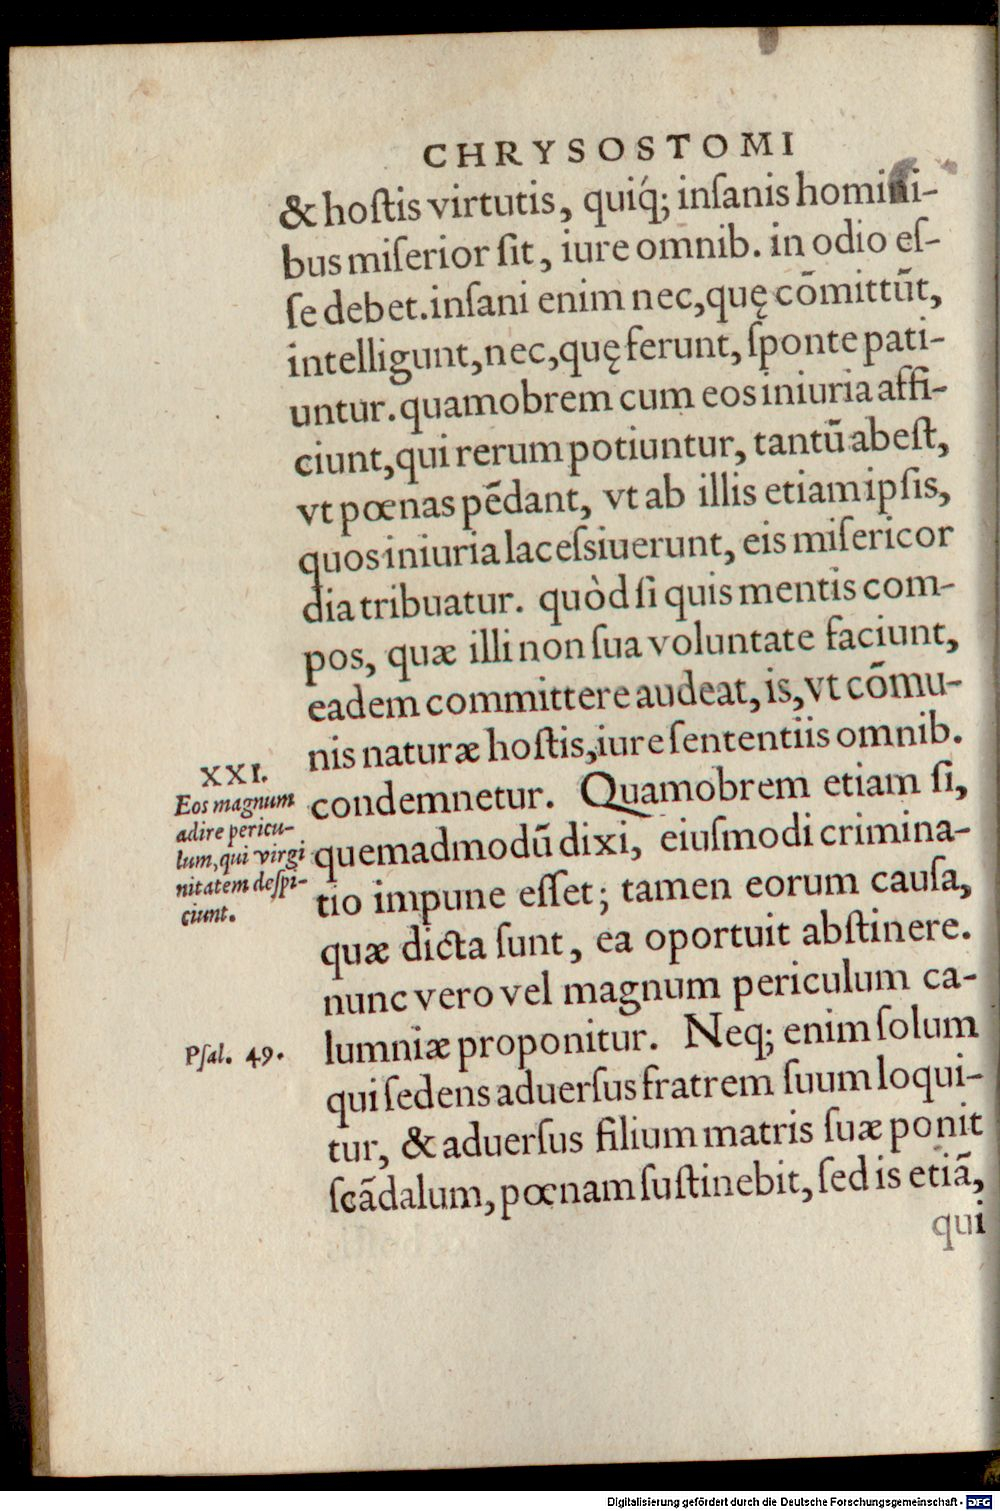 CHRYSOSTOMI
& hoſtis virtutis, quiq́; inſanis homini-
bus miſerior ſit, iure omnib. in odio eſ-
ſe debet. inſani enim nec, quę cōmittūt,
intelligunt, nec, quę ferunt, ſponte pati-
untur. quamobrem cum eos iniuria affi-
ciunt, qui rerum potiuntur, tantū abeſt,
vt pœnas pēdant, vt ab illis etiam ipſis,
quos iniuria laceſsiuerunt, eis miſericor
dia tribuatur. quòd ſi quis mentis com-
pos, quæ illi non ſua voluntate faciunt,
eadem committere audeat, is, vt cōmu-
nis naturæ hoſtis, iure ſententiis omnib.
condemnetur. Quamobrem etiam ſi,
quemadmodū dixi, eiuſmodi crimina-
tio impune eſſet; tamen eorum cauſa,
quæ dicta ſunt, ea oportuit abſtinere.
nunc vero vel magnum periculum ca-
lumniæ proponitur. Neq; enim ſolum
qui ſedens aduerſus fratrem ſuum loqui-
tur, & aduerſus filium matris ſuæ ponit
ſcādalum, pœnam ſuſtinebit, ſed is etiā,
qui
XXI.
Eos magnum
adire pericu-
lum, qui virgi
nitatem deſpi-
ciunt.
Pſal. 49.
Digitalisierung gefördert durch die Deutsche Forschungsgemeinschaft - DFG